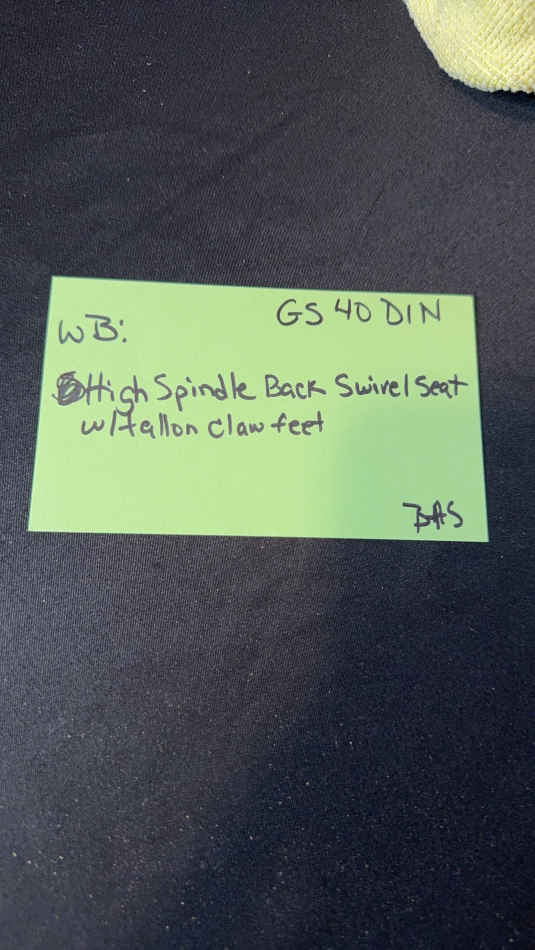 GS 40 DIN
WB:
High Spindle Back Swivel Seat
w/Tallon Claw feet